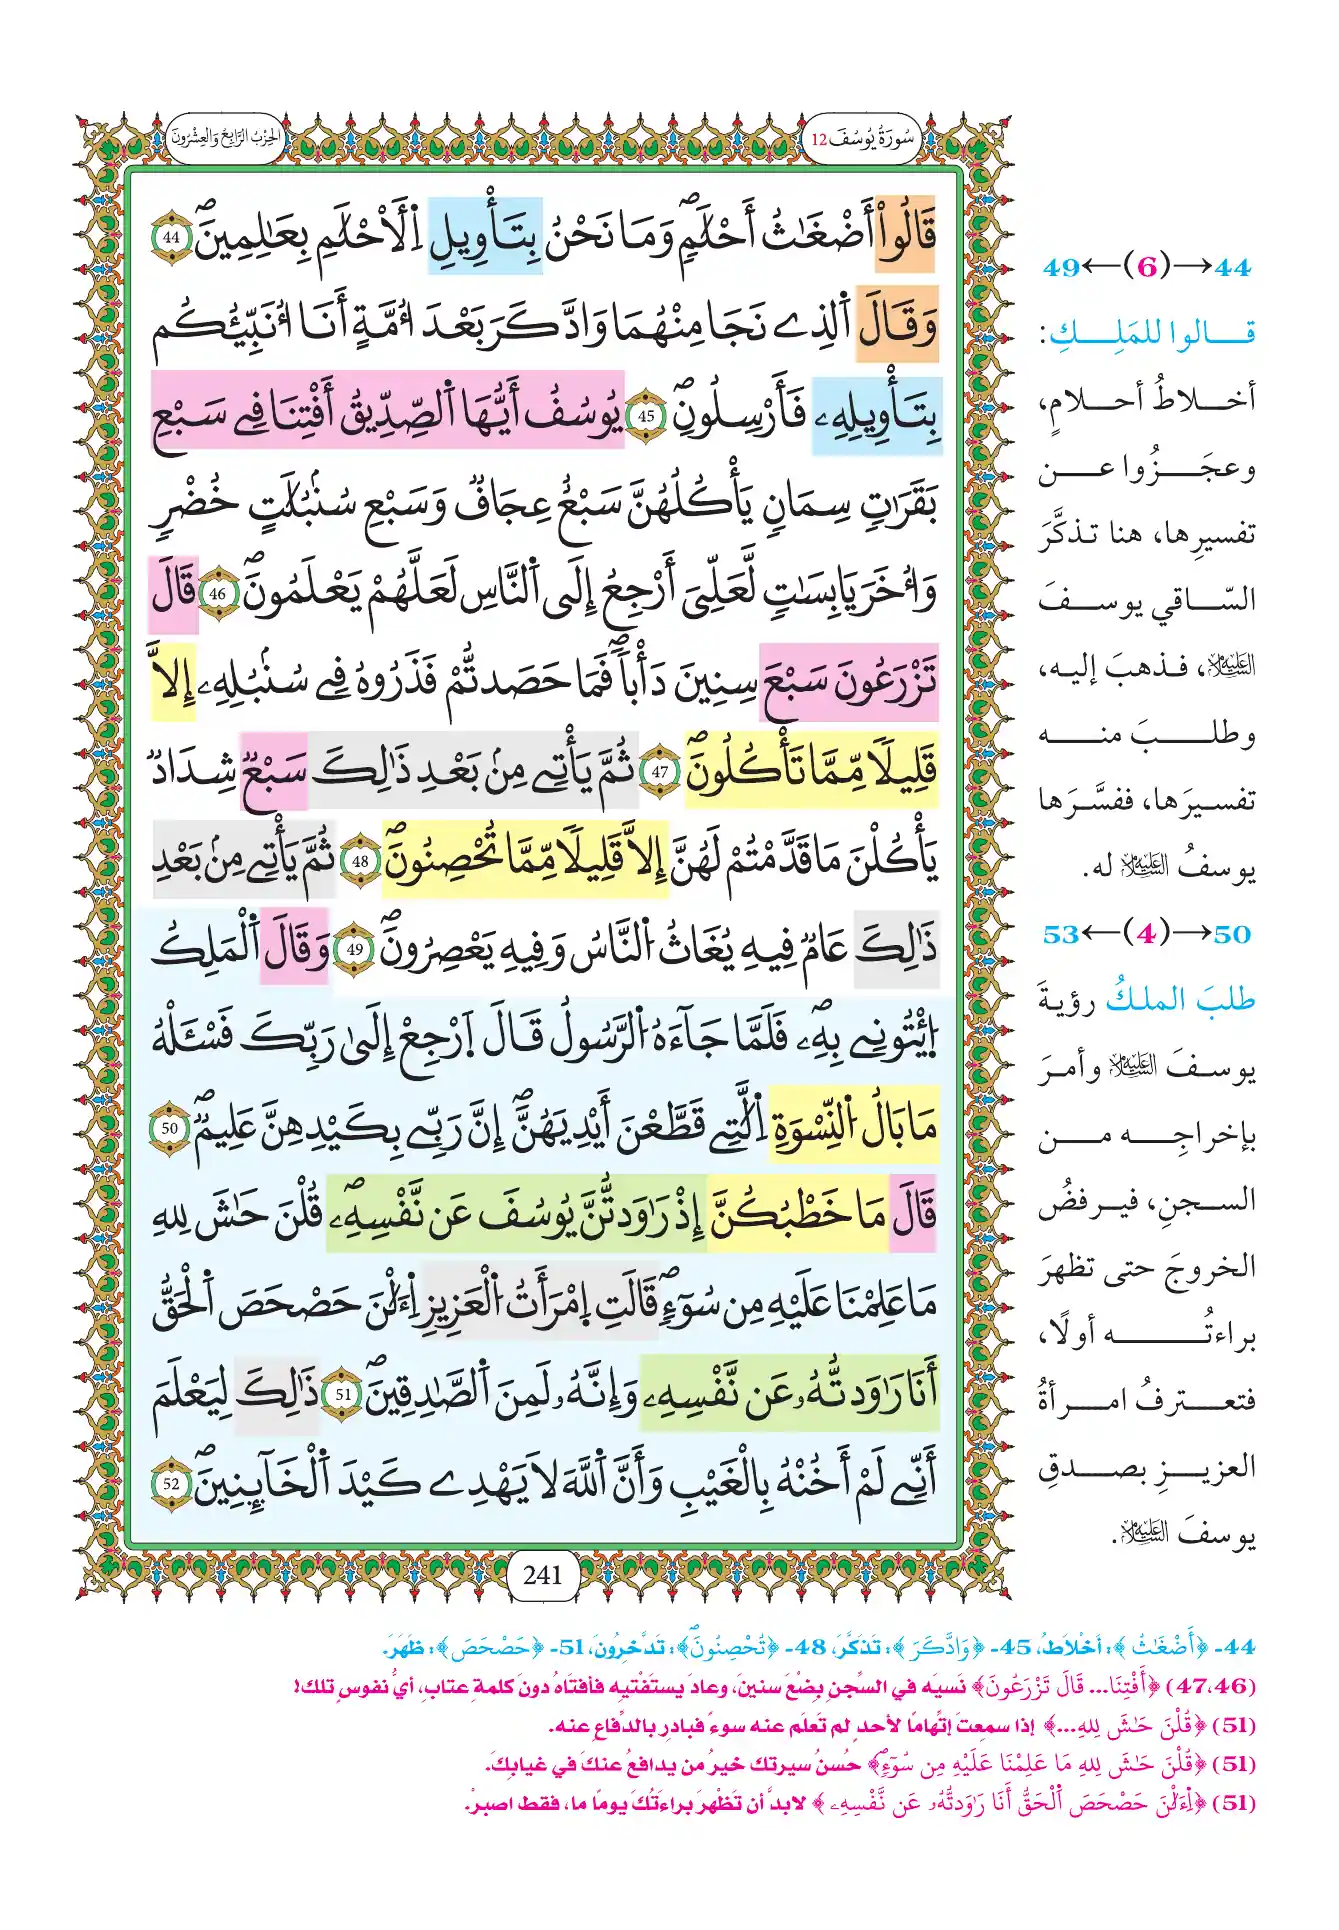 سُورَةُ يُوسُفَ 12
الحِزْبُ الرَّابِعُ وَالعِشْرُونَ
قَالُوٓاْ أَضْغَٰثُ أَحْلَٰمٖۖ وَمَا نَحْنُ بِتَأْوِيلِ اِ۬لْأَحْلَٰمِ بِعَٰلِمِينَۖ 44
وَقَالَ اَ۬لذِے نَجَا مِنْهُمَا وَادَّكَرَ بَعْدَ أُمَّةٍ أَنَا أُنَبِّئُكُم
بِتَأْوِيلِهِۦ فَأَرْسِلُونِۖ 45 يُوسُفُ أَيُّهَا اَ۬لصِّدِّيقُ أَفْتِنَا فِے سَبْعِ
بَقَرَٰتٖ سِمَانٖ يَأْكُلُهُنَّ سَبْعٌ عِجَافٞ وَسَبْعِ سُنۢبُلَٰتٍ خُضْرٖ
وَأُخَرَ يَابِسَٰتٖ لَّعَلِّيَ أَرْجِعُ إِلَي اَ۬لنَّاسِ لَعَلَّهُمْ يَعْلَمُونَۖ 46 قَالَ
تَزْرَعُونَ سَبْعَ سِنِينَ دَأْباٗۖ فَمَا حَصَدتُّمْ فَذَرُوهُ فِے سُنۢبُلِهِۦ إِلَّا
قَلِيلاٗ مِّمَّا تَأْكُلُونَۖ 47 ثُمَّ يَأْتِے مِنۢ بَعْدِ ذَٰلِكَ سَبْعٞ شِدَادٞ
يَأْكُلْنَ مَا قَدَّمْتُمْ لَهُنَّ إِلَّا قَلِيلاٗ مِّمَّا تُحْصِنُونَۖ 48 ثُمَّ يَأْتِے مِنۢ بَعْدِ
ذَٰلِكَ عَامٞ فِيهِ يُغَاثُ اُ۬لنَّاسُ وَفِيهِ يَعْصِرُونَۖ 49 وَقَالَ اَ۬لْمَلِكُ
اُ۪ئْتُونِے بِهِۦۖ فَلَمَّا جَآءَهُ اُ۬لرَّسُولُ قَالَ اَ۪رْجِعْ إِلَيٰ رَبِّكَ فَسْـَٔلْهُ
مَا بَالُ اُ۬لنِّسْوَةِ اِ۬لَّٰتِے قَطَّعْنَ أَيْدِيَهُنَّۖ إِنَّ رَبِّے بِكَيْدِهِنَّ عَلِيمٞۖ 50
قَالَ مَا خَطْبُكُنَّ إِذْ رَٰوَدتُّنَّ يُوسُفَ عَن نَّفْسِهِۦۖ قُلْنَ حَٰشَ لِلهِ
مَا عَلِمْنَا عَلَيْهِ مِن سُوٓءٖۖ قَالَتِ اِ۪مْرَأَتُ اُ۬لْعَزِيزِ اِ۬لَٰٔنَ حَصْحَصَ اَ۬لْحَقُّ
أَنَا رَٰوَدتُّهُۥ عَن نَّفْسِهِۦ وَإِنَّهُۥ لَمِنَ اَ۬لصَّٰدِقِينَۖ 51 ذَٰلِكَ لِيَعْلَمَ
أَنِّے لَمْ أَخُنْهُ بِالْغَيْبِ وَأَنَّ اَ۬للَّهَ لَا يَهْدِے كَيْدَ اَ۬لْخَآئِنِينَۖ 52
241
49←(6)→44
قالوا للمَلِكِ:
أخلاطُ أحلامٍ،
وعجَزُوا عن
تفسيرِها، هنا تذكَّرَ
السّاقي يوسفَ
عليه السلام، فذهبَ إليه،
وطلبَ منه
تفسيرَها، ففسَّرَها
يوسفُ عليه السلام له.
53←(4)→50
طلبَ الملكُ رؤيةَ
يوسفَ عليه السلام وأمرَ
بإخراجِه من
السجنِ، فيرفضُ
الخروجَ حتى تظهرَ
براءتُه أولًا،
فتعترفُ امرأةُ
العزيزِ بصدقِ
يوسفَ عليه السلام.
44- ﴿أَضْغَٰثُ﴾: أخْلاطُ، 45- ﴿وَادَّكَرَ﴾: تَذَكَّرَ، 48- ﴿تُحْصِنُونَۖ﴾: تَدَّخِرُونَ، 51- ﴿حَصْحَصَ﴾: ظَهَرَ.
(47،46) ﴿أَفْتِنَا... قَالَ تَزْرَعُونَ﴾ نَسيَه في السِّجنِ بِضْعَ سنينَ، وعادَ يستَفْتيهِ فأفتَاهُ دونَ كلمةِ عتابٍ، أيُّ نفوسٍ تلك!
(51) ﴿قُلْنَ حَٰشَ لِلهِ...﴾ إذا سمعتَ اتِّهامًا لأحدٍ لم تَعلَم عنه سوءً فبادرِ بالدِّفاعِ عنه.
(51) ﴿قُلْنَ حَٰشَ لِلهِ مَا عَلِمْنَا عَلَيْهِ مِن سُوٓءٖۖ﴾ حُسنُ سيرتك خيرُ من يدافعُ عنكَ في غيابِكَ.
(51) ﴿اِ۬لَٰٔنَ حَصْحَصَ اَ۬لْحَقُّ أَنَا رَٰوَدتُّهُۥ عَن نَّفْسِهِۦ﴾ لابدَّ أن تَظْهرَ براءَتُكَ يومًا ما، فقط اصبرْ.